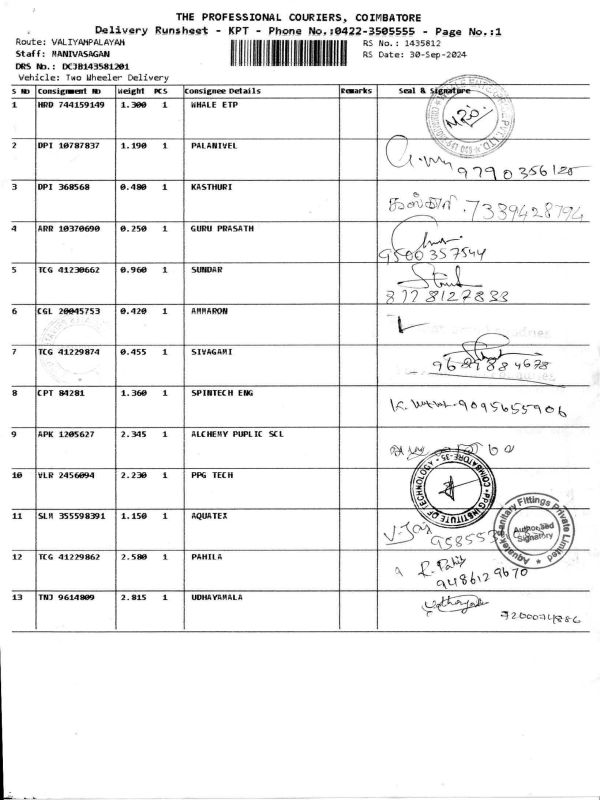 THE PROFESSIONAL COURIERS, COIMBATORE
Delivery Runsheet - KPT - Phone No.:0422-3505555 - Page No.:1
Route: VALIYAMPALAYAM
RS No.: 1435812
Staff: MANIVASAGAN
RS Date: 30-Sep-2024
DRS No.: DCJB143581201
Vehicle: Two Wheeler Delivery
S No Consignment No Weight PCS Consignee Details Remarks Seal & Signature
1 HRD 744159149 1.300 1 WHALE ETP
2 DPI 10787837 1.190 1 PALANIVEL
9790356125
3 DPI 368568 0.480 1 KASTHURI
கஸ்தூரி 7339428794
4 ARR 10370690 0.250 1 GURU PRASATH
9500357544
5 TCG 41230662 0.960 1 SUNDAR
8778127833
6 CGL 20045753 0.420 1 AMMARON
7 TCG 41229874 0.455 1 SIVAGAMI
8 CPT 84281 1.360 1 SPINTECH ENG
9095655906
9 APK 1205627 2.345 1 ALCHEMY PUPLIC SCL
10 VLR 2456094 2.230 1 PPG TECH
PPG INSTITUTE OF TECHNOLOGY - COIMBATORE-35
11 SLM 355598391 1.150 1 AQUATEX
Aquatek Sanitary Fittings Private Limited
Authorised
Signatory
12 TCG 41229862 2.580 1 PAHILA
9486129670
13 TNJ 9614809 2.815 1 UDHAYAMALA
7200074886